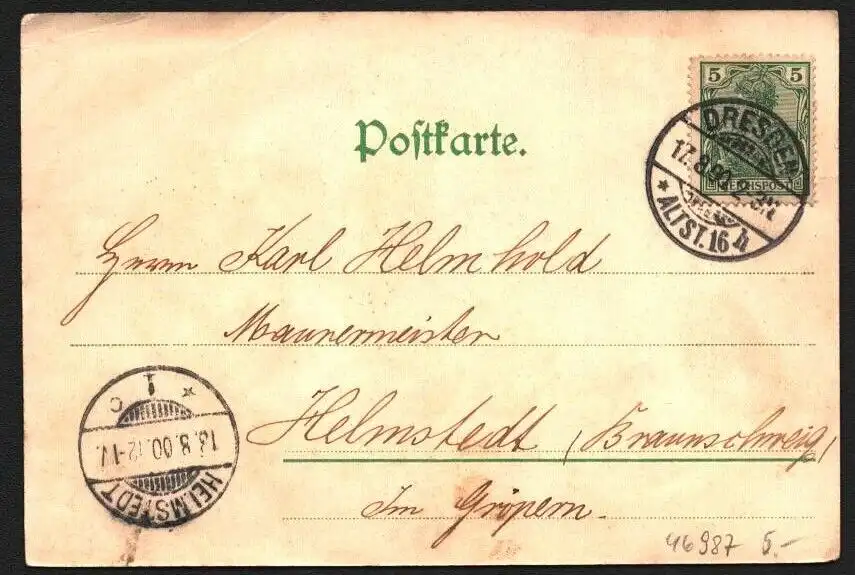 5 5
REICHSPOST
DRESDEN
17.8.00. 2-3N
* ALTST. 16 h
Poſtkarte.
Herrn Karl Helmhold
Maurermeister
Helmstedt (Braunschweig)
Im Gröpern.
* 1 c
18.8.00.12-1V.
HELMSTEDT
46987 5.-